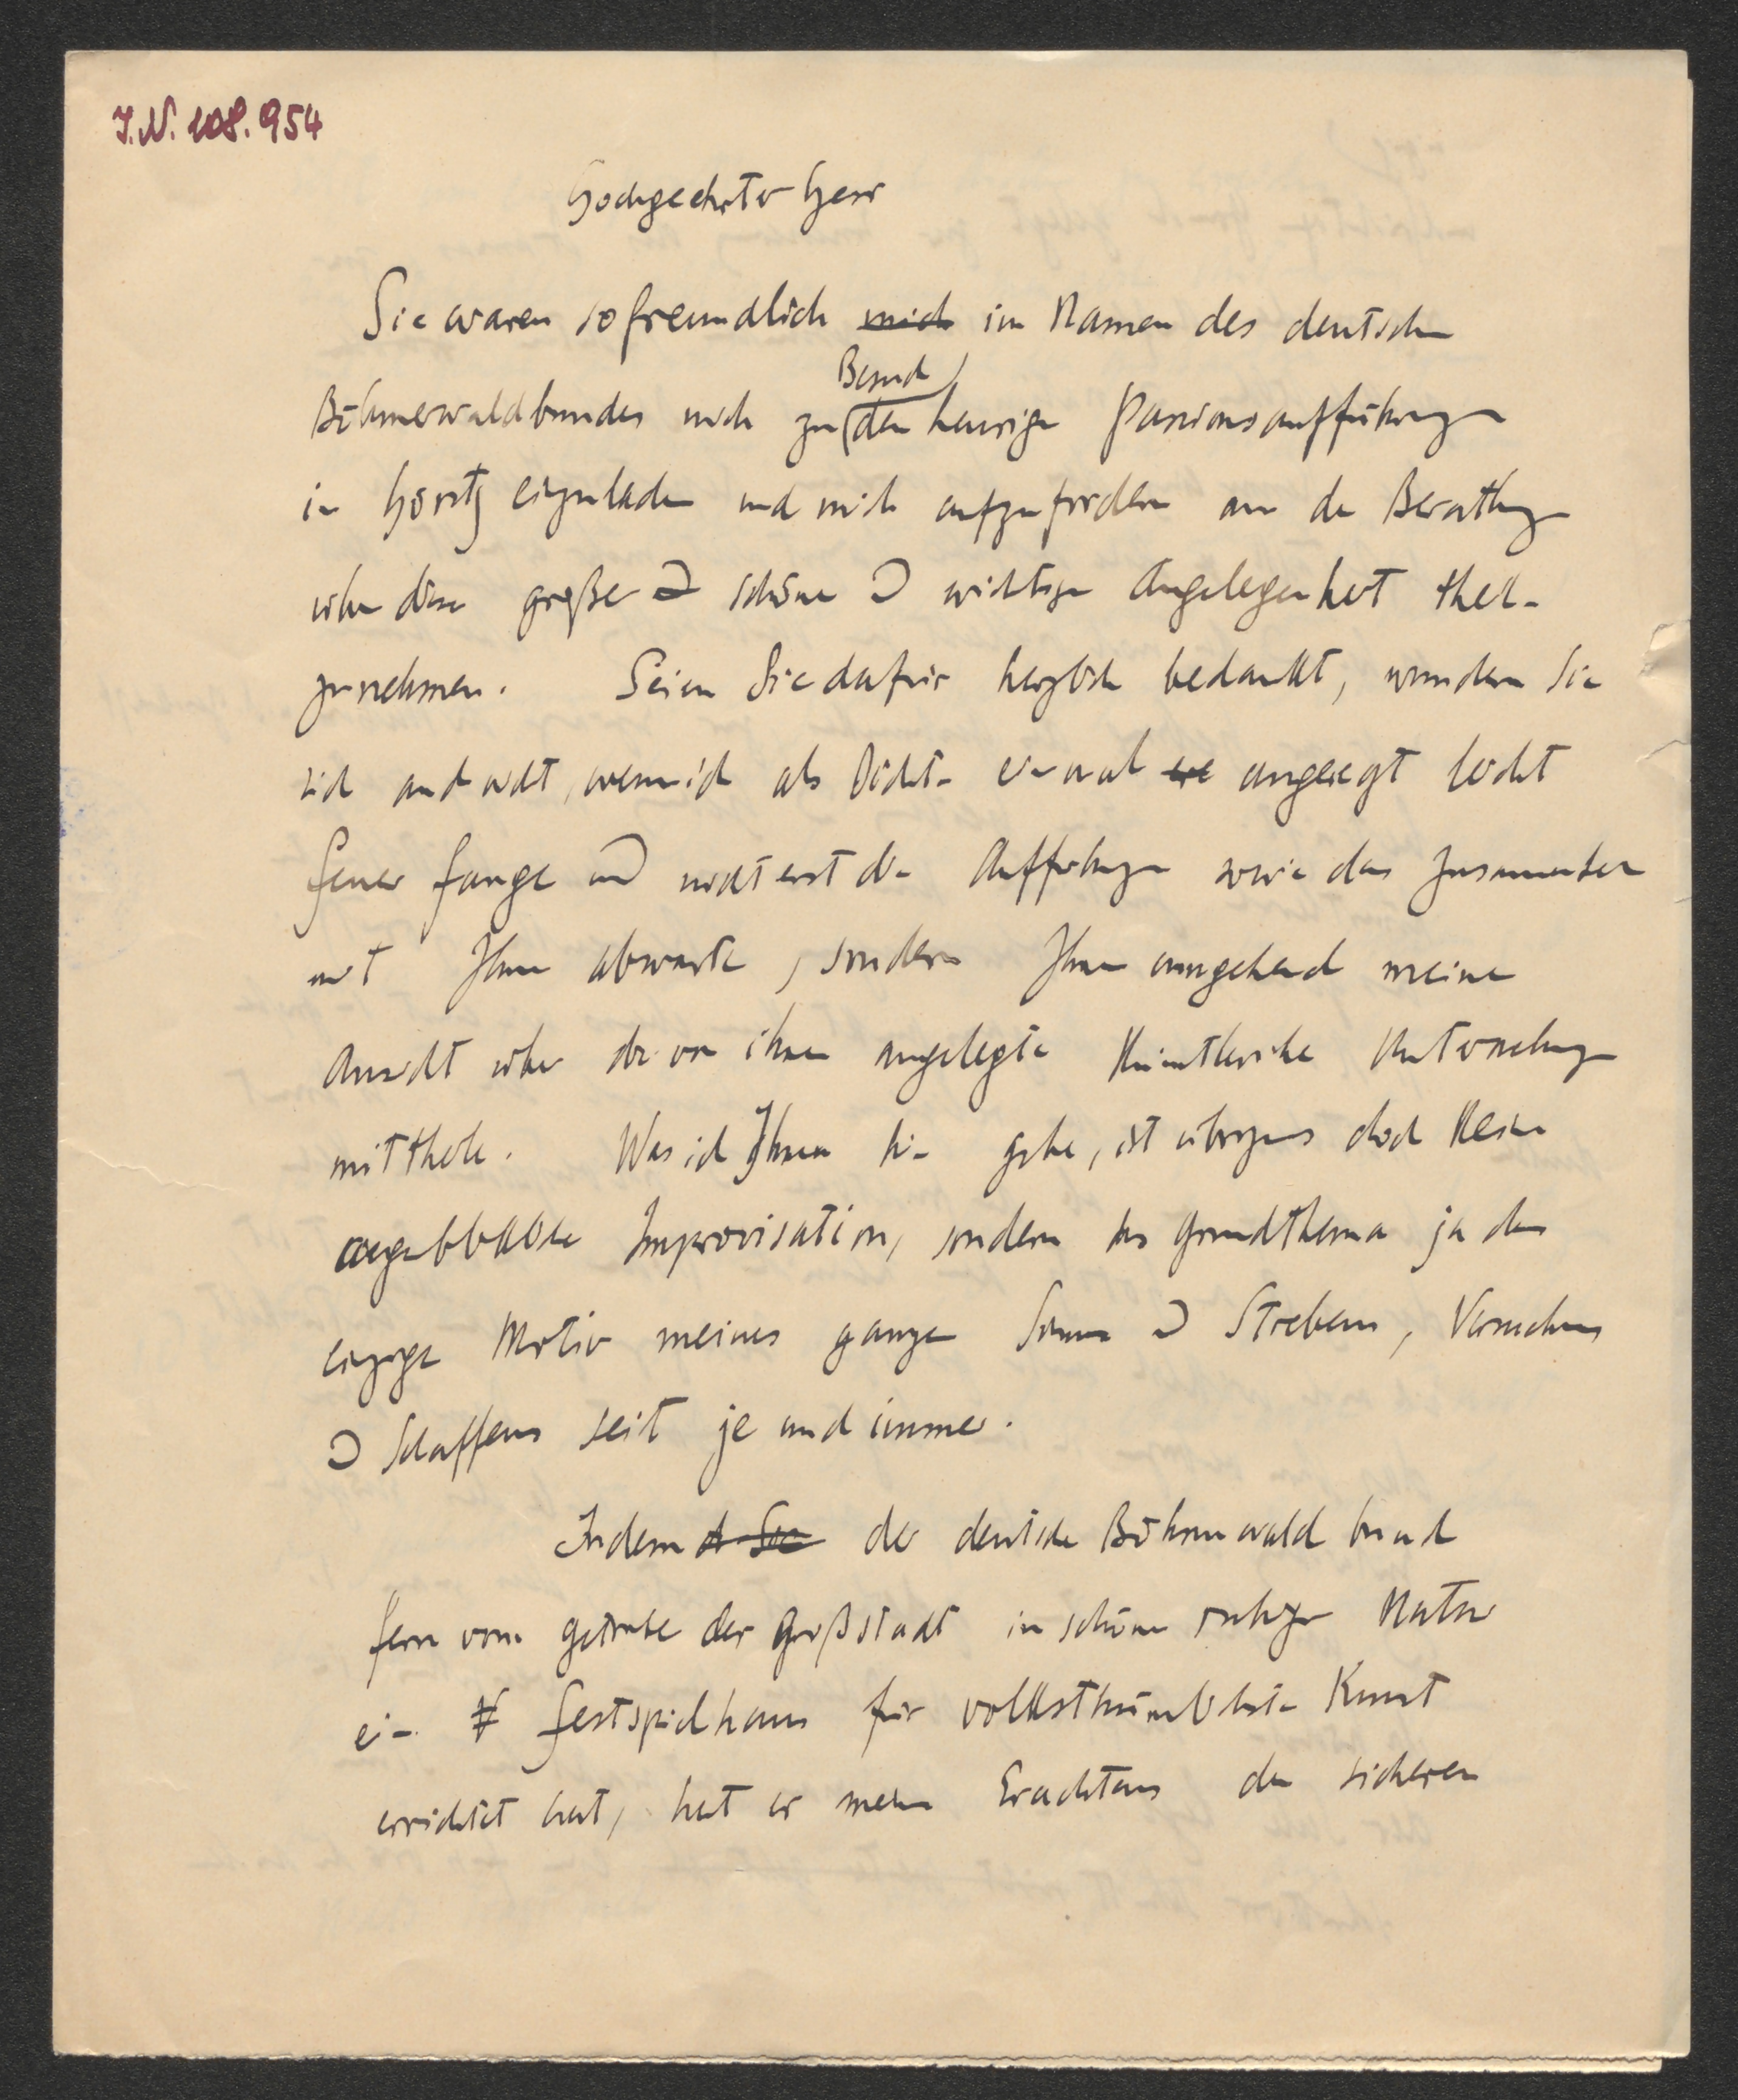 J.N. 108.954
Hochgeehrter Herr
Sie waren so freundlich mich im Namen des deutschen
Besuch
Böhmerwaldbundes mich zu den heurigen Passionsaufführungen
in Höritz einzuladen und mich aufzufordern an den Berathungen
über diese große u schöne u wichtige Angelegenheit theil-
zunehmen. Seien Sie dafür herzlich bedankt, wundern Sie
sich auch nicht, wenn ich als Dichter einmal angeregt leicht
Feuer fange und nicht erst die Aufführungen sowie das Zusammensein
mit Ihnen abwarte, sondern Ihnen umgehend meine
Ansicht über die von ihnen angelegte künstlerische Unternehmung
mittheile. Was ich Ihnen hier gebe, ist übrigens doch keine
augenblickliche Improvisation, sondern das Grundthema ja das
einzige Motiv meines ganzen Sinnens u Strebens, Versuchens
u Schaffens seit je und immer.
Indem der deutsche Böhmerwaldbund
fern vom Getriebe der Großstadt in schöner ruhiger Natur
ein Festspielhaus für volksthümlichste Kunst
errichtet hat, hat er meines Erachtens den sicheren